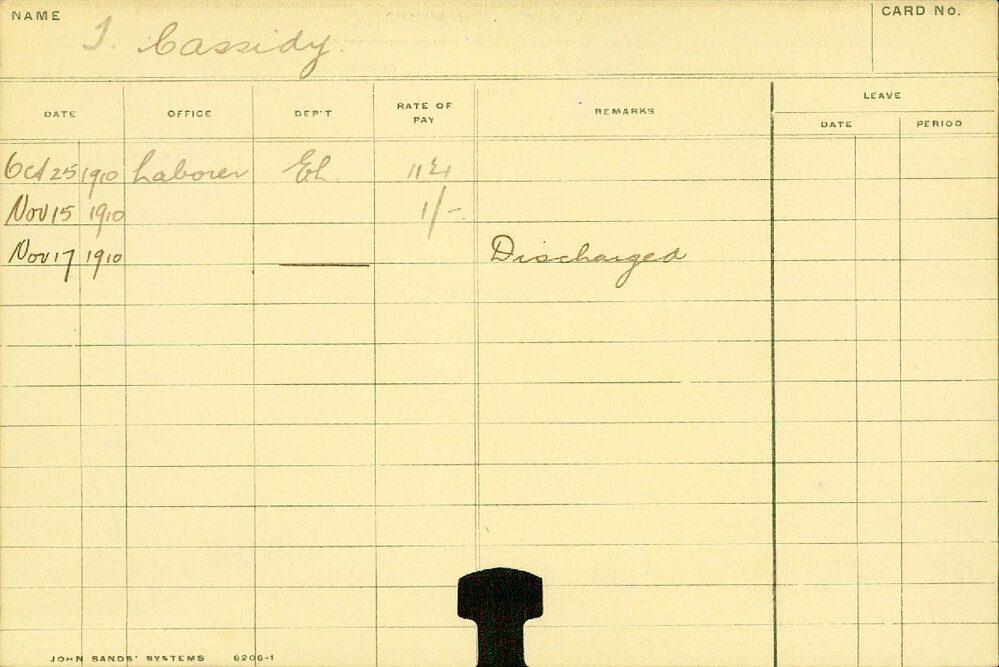 NAME
CARD No.
Cassidy.
DATE OFFICE DEP'T RATE OF PAY REMARKS LEAVE
DATE PERIOD
Oct 25 1910 Laborer El.
Nov 15 1910 1/-.
Nov 17 1910 Discharged
JOHN SANDS' SYSTEMS 6206-1